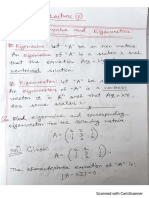 Lecture ②
Eigenvalue and Eigenvectors
Eigenvalue: Let "A" be an n×n matrix.
An Eigenvalue of A is a scalar λ such
that the equation Ax = λx has a
nontrivial solution.
Eigenvectors: Let "A" be an n×n
An Eigenvector of A is a nonzero
vector in such that Ax = λx, for
some scalar λ.
Find eigenvalue and corresponding
eigenvector for the following matrix
A =
Sol: Given
A =
The characteristic equation of "A" is,
|A - λI| = 0
Scanned with CamScanner